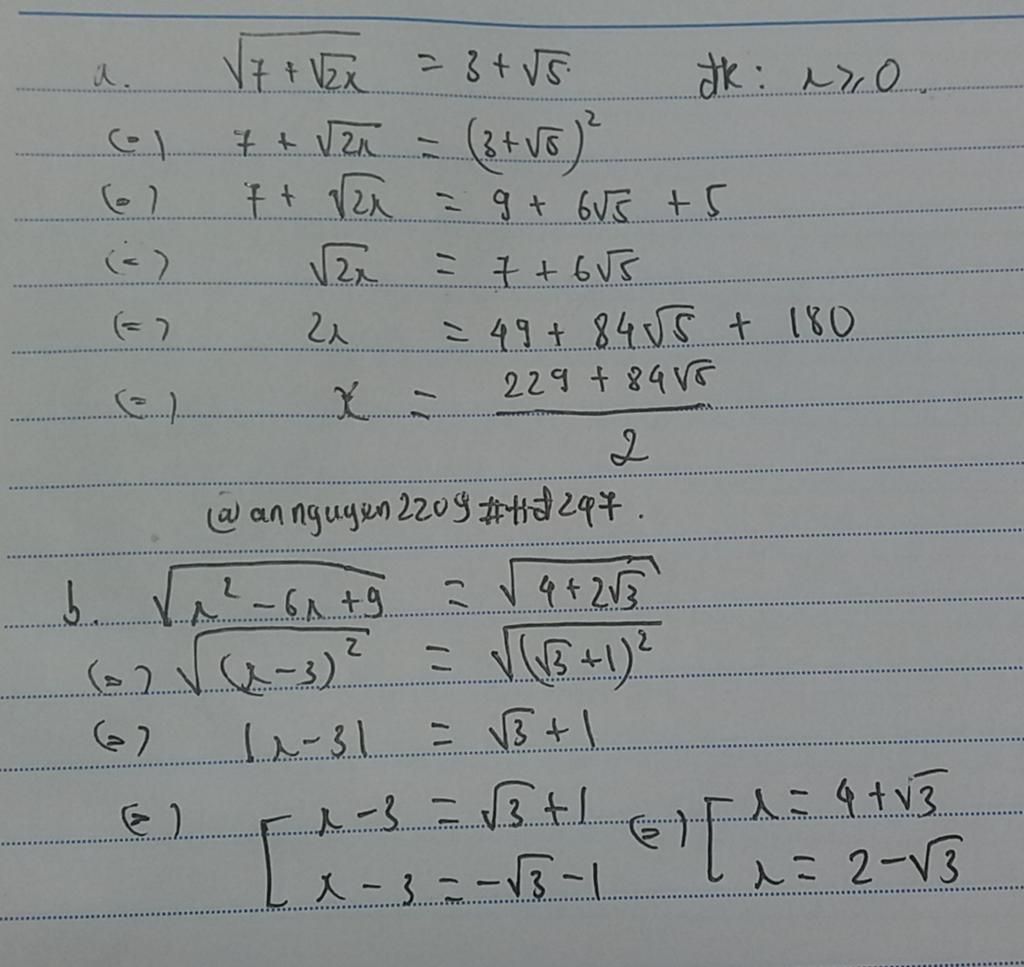 a. √(7 + √2x) = 3 + √5. đk: x ≥ 0.
(=) 7 + √2x = (3+√5)²
(=) 7 + √2x = 9 + 6√5 + 5
(=) √2x = 7 + 6√5
(=) 2x = 49 + 84√5 + 180
(=) x = (229 + 84√5)/2
@annguyen2209#Hd247.
b. √(x² - 6x + 9) = √(4 + 2√3)
(=) √((x-3)²) = √((√3+1)²)
(=) |x-3| = √3 + 1
(=) [ x-3 = √3+1 (=) [ x = 4+√3
x-3 = -√3-1 x = 2-√3